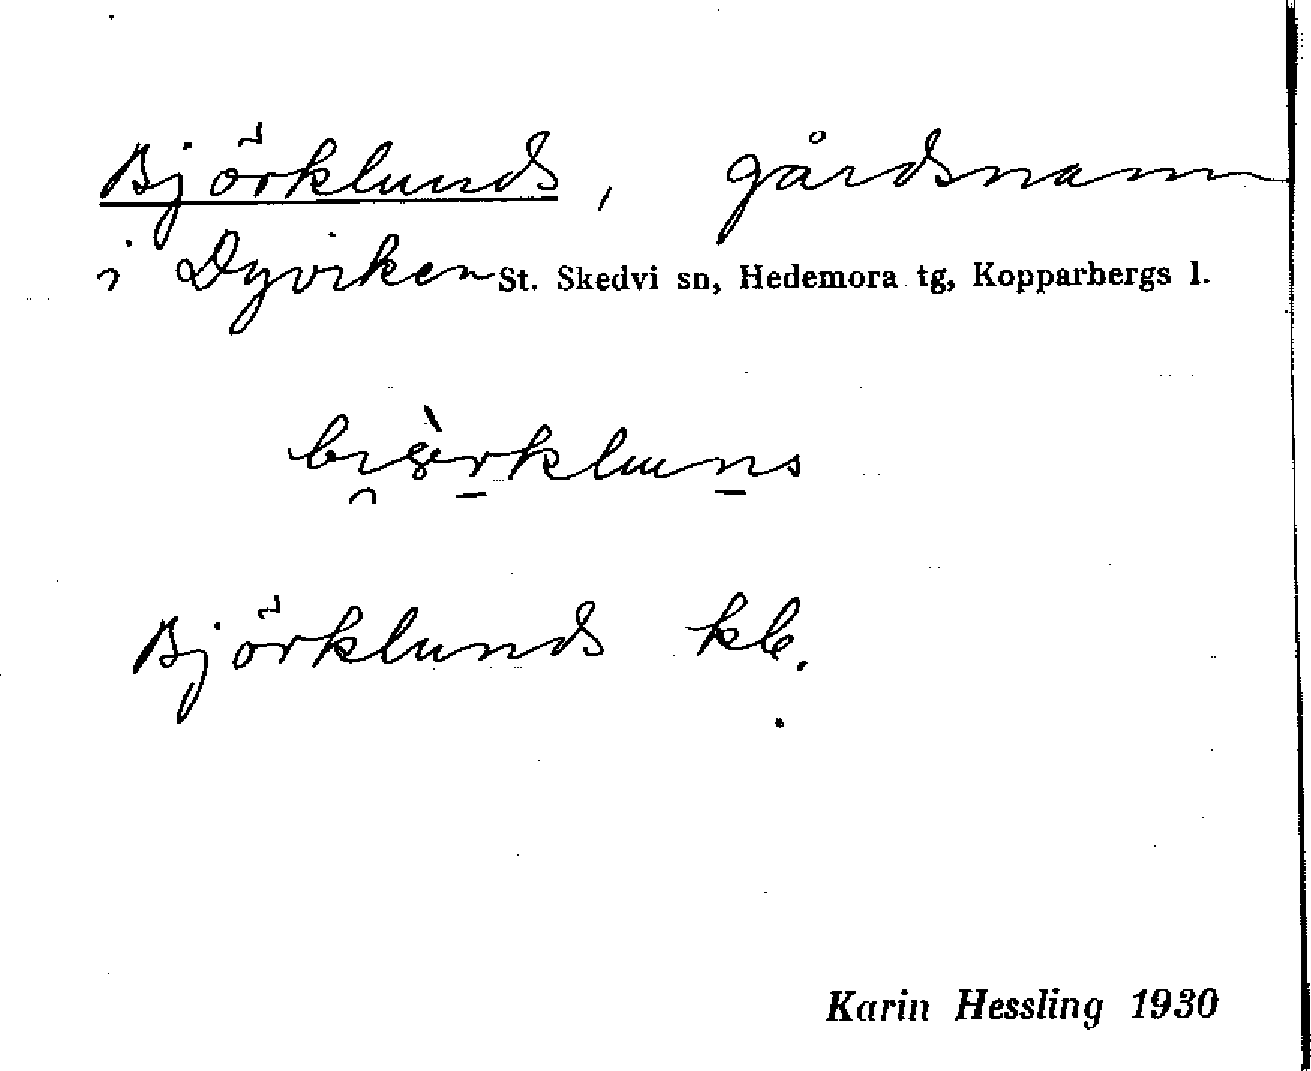 Björklunds, gårdsnamn
i Dyviken St. Skedvi sn, Hedemora tg, Kopparbergs l.
Björklunds kb.
Karin Hessling 1930